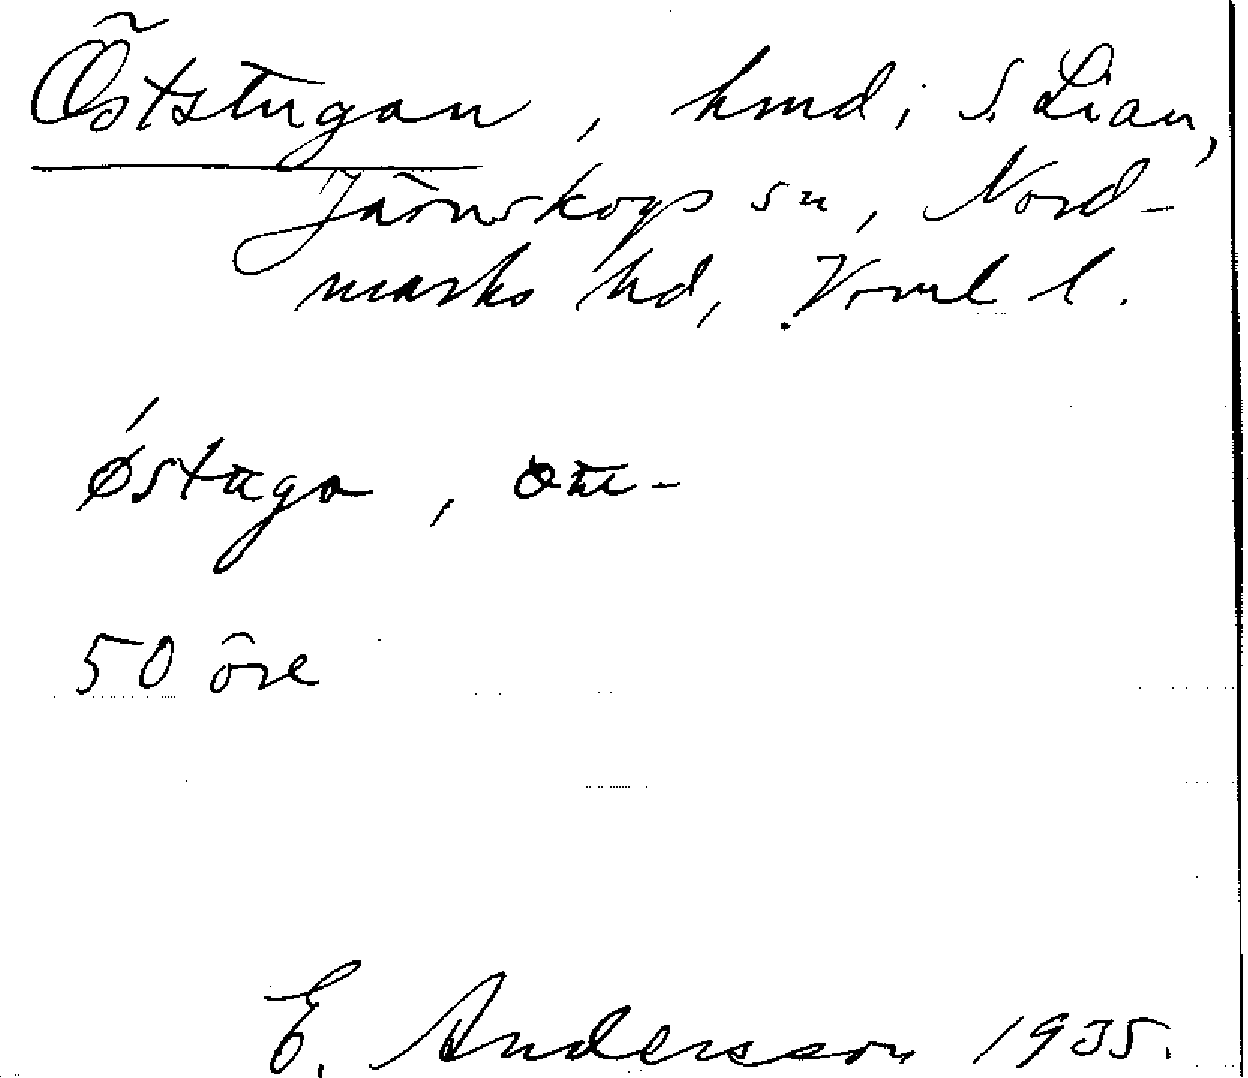 Öststugan, hmd i S. Lian,
Järnskogs sn, Nord-
marks hd, Vrml l.
østuga,
50 öre
E. Andersson 1935.